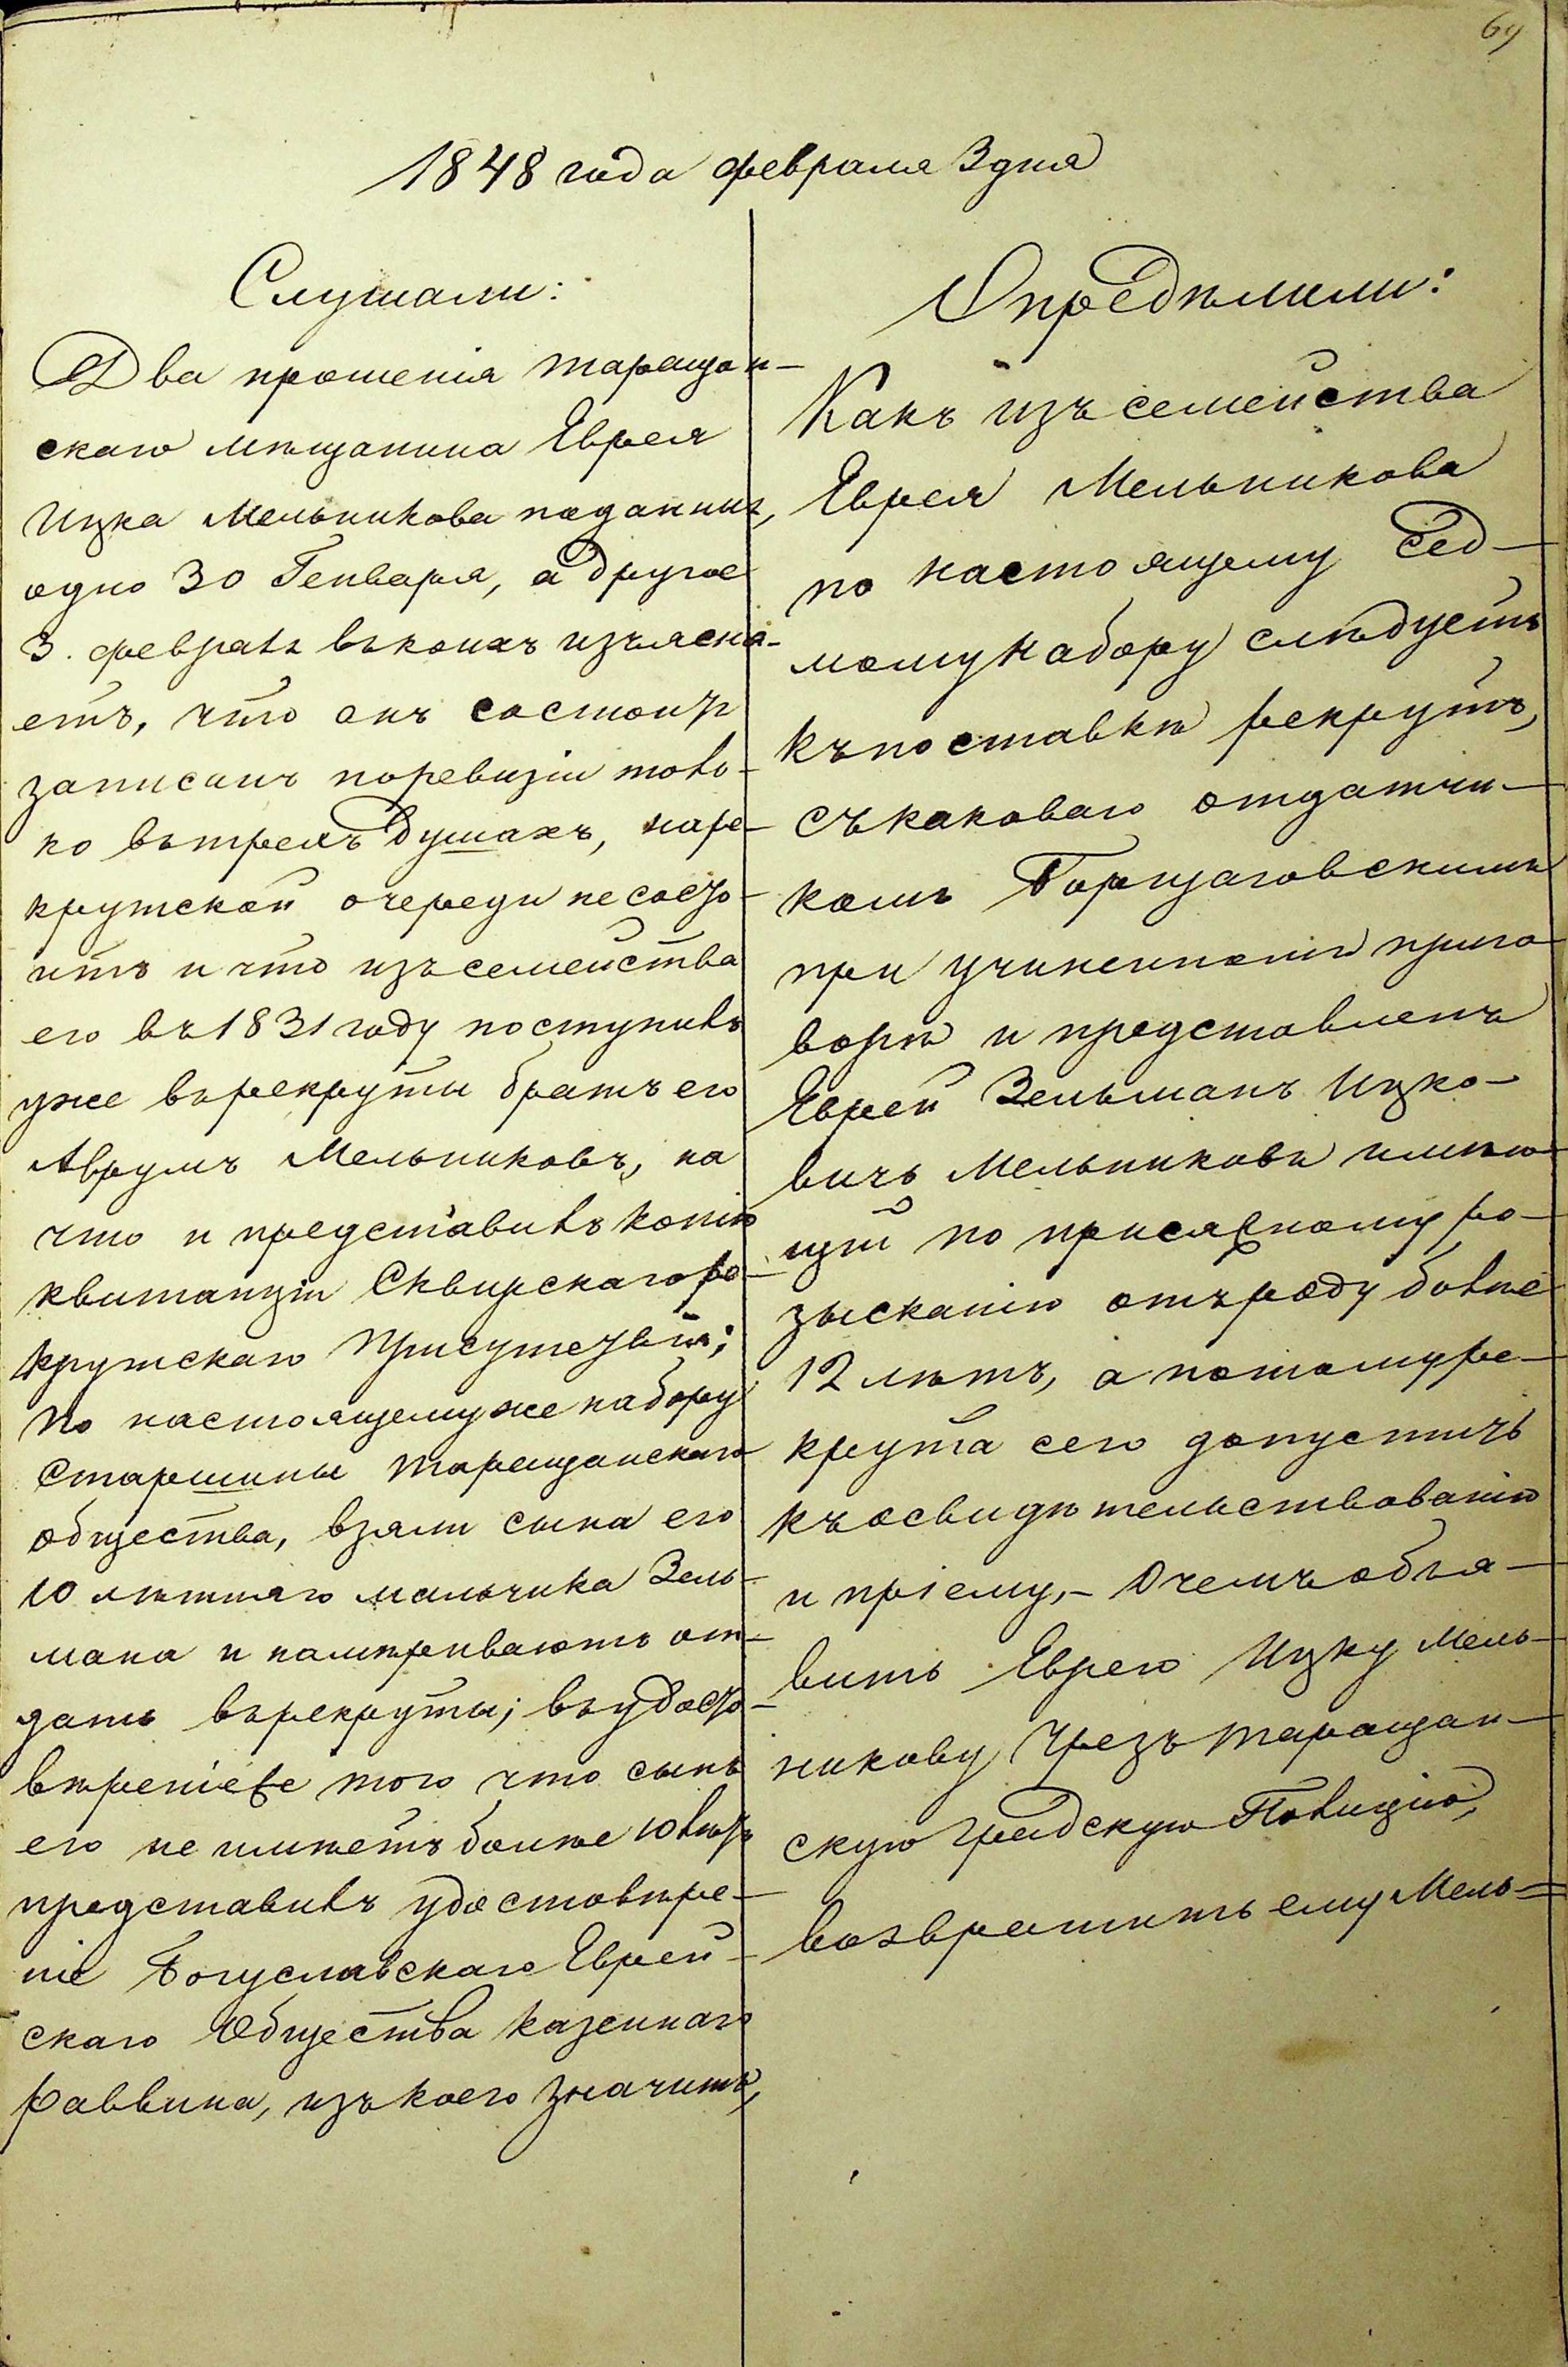 69
1848 года февраля 3 дня
Слушали:
Два прошенія таращан-
скаго мѣщанина Еврея
Ицка Мельникова поданныя,
одно 30 Генваря, а другое
3. февраля въ коихъ изъясня-
етъ, что онъ состоитъ
записанъ по ревизіи толь-
ко въ трехъ душахъ, на ре-
крутской очереди не состо-
итъ и что изъ семейства
его въ 1831 году поступилъ
уже въ рекруты братъ его
Аврумъ Мельниковъ, на
что и представилъ копію
квитанціи Сквирскаго ре-
крутскаго Присутствія;
по настоящему же набору
старшины таращанскаго
общества, взяли сына его
10 лѣтняго мальчика Зель-
мана и намѣреваютъ от-
дать въ рекруты; въ удосто-
вѣреніе же того что сынъ
его не имѣетъ болѣе 10 лѣтъ
представилъ удостовѣре-
ніе Богуславскаго Еврей-
скаго Общества казеннаго
раввина, изъ коего значитъ,
Опредѣлили:
Какъ изъ семейства
Еврея Мельникова
по настоящему сед-
мому набору слѣдуетъ
къ поставкѣ рекрутъ,
съ каковаго отдатчи-
комъ Борщаговскимъ
при учиненномъ приго-
ворѣ и представленъ
Еврей Зельманъ Ицко-
вичъ Мельниковъ имѣю-
щій по присяжному ро-
зысканію отъ роду болѣе
12 лѣтъ, а потому ре-
крута сего допустить
къ освидѣтельствованію
и пріему,- О чемъ объя-
вить Еврею Ицку Мель-
никову Чрезъ таращан-
скую градскую Полицію,
возвратить ему Мель=